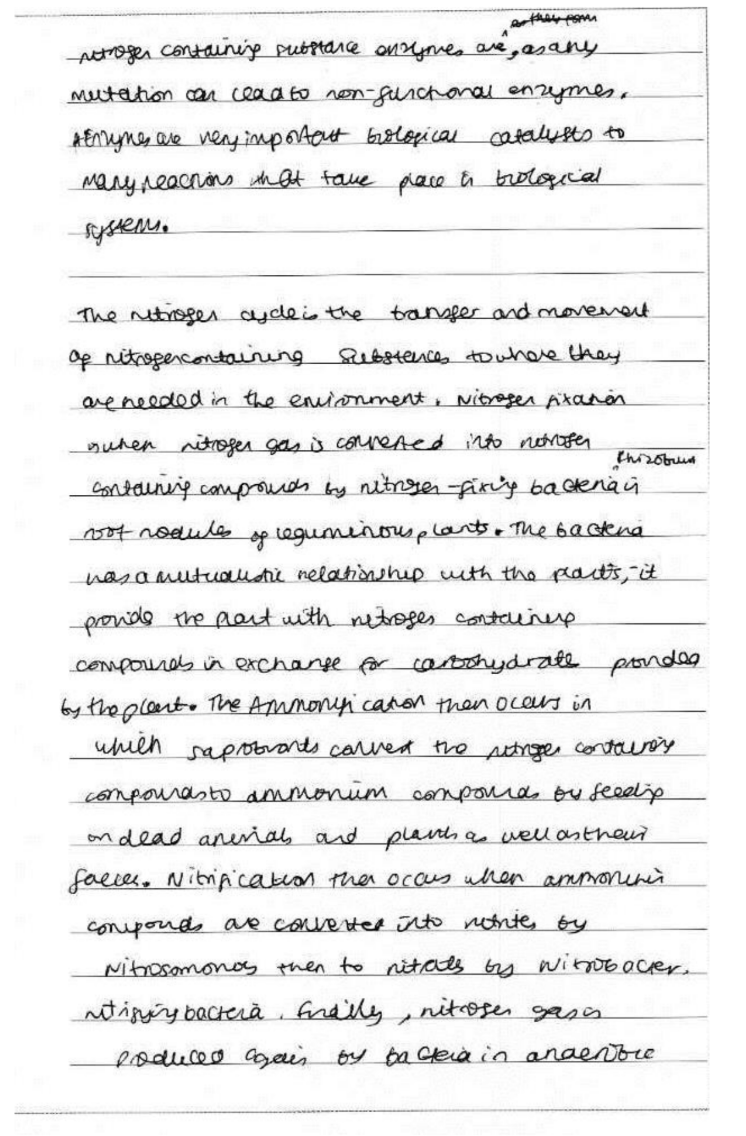 nitrogen containing substance enzymes are, as any
mutation can lead to non-functional enzymes.
Enzymes are very important biological catalysts to
many reactions that take place in biological
systems.
The nitrogen cycle is the transfer and movement
of nitrogen containing substances to where they
are needed in the environment. Nitrogen fixation
is when nitrogen gas is converted into nitrogen
Rhizobium
containing compounds by nitrogen-fixing bacteria in
root nodules of leguminous plants. The bacteria
has a mutualistic relationship with the plants, it
provide the plant with nitrogen containing
compounds in exchange for carbohydrate provided
by the plant. The Ammonification then occurs in
which saprobionts convert the nitrogen containing
compounds to ammonium compounds by feeding
on dead animals and plants as well as their
faeces. Nitrification then occurs when ammonium
compounds are converted into nitrites by
Nitrosomonas then to nitrates by Nitrobacter.
nitrifying bacteria. Finally, nitrogen gas is
produced again by bacteria in anaerobic